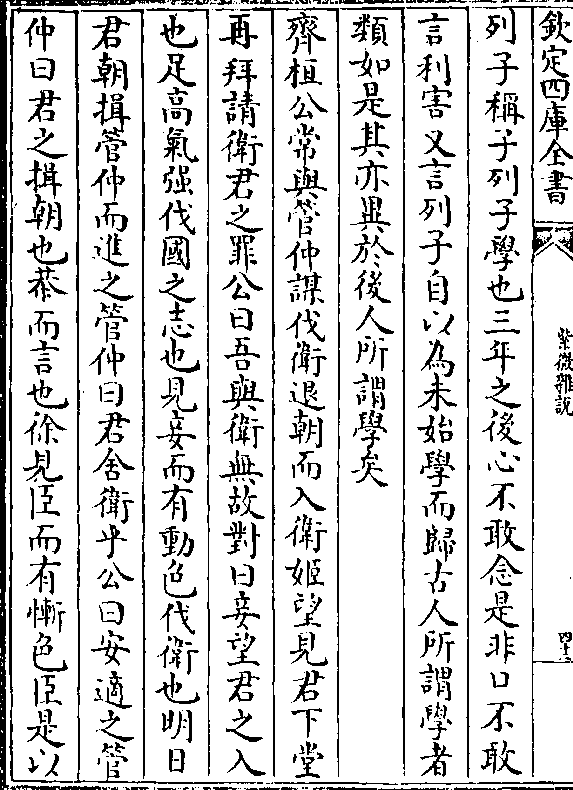 欽定四庫全書
紫微雜說
四十二
列子稱子列子學也三年之後心不敢念是非口不敢
言利害又言列子自以為未始學而歸古人所謂學者
類如是其亦異於後人所謂學矣
齊桓公常與管仲謀伐衛退朝而入衛姬望見君下堂
再拜請衛君之罪公曰吾與衛無故對曰妾望君之入
也足高氣强伐國之志也見妾而有動色伐衛也明日
君朝揖管仲而進之管仲曰君舍衛乎公曰安適之管
仲曰君之揖朝也恭而言也徐見臣而有慚色臣是以